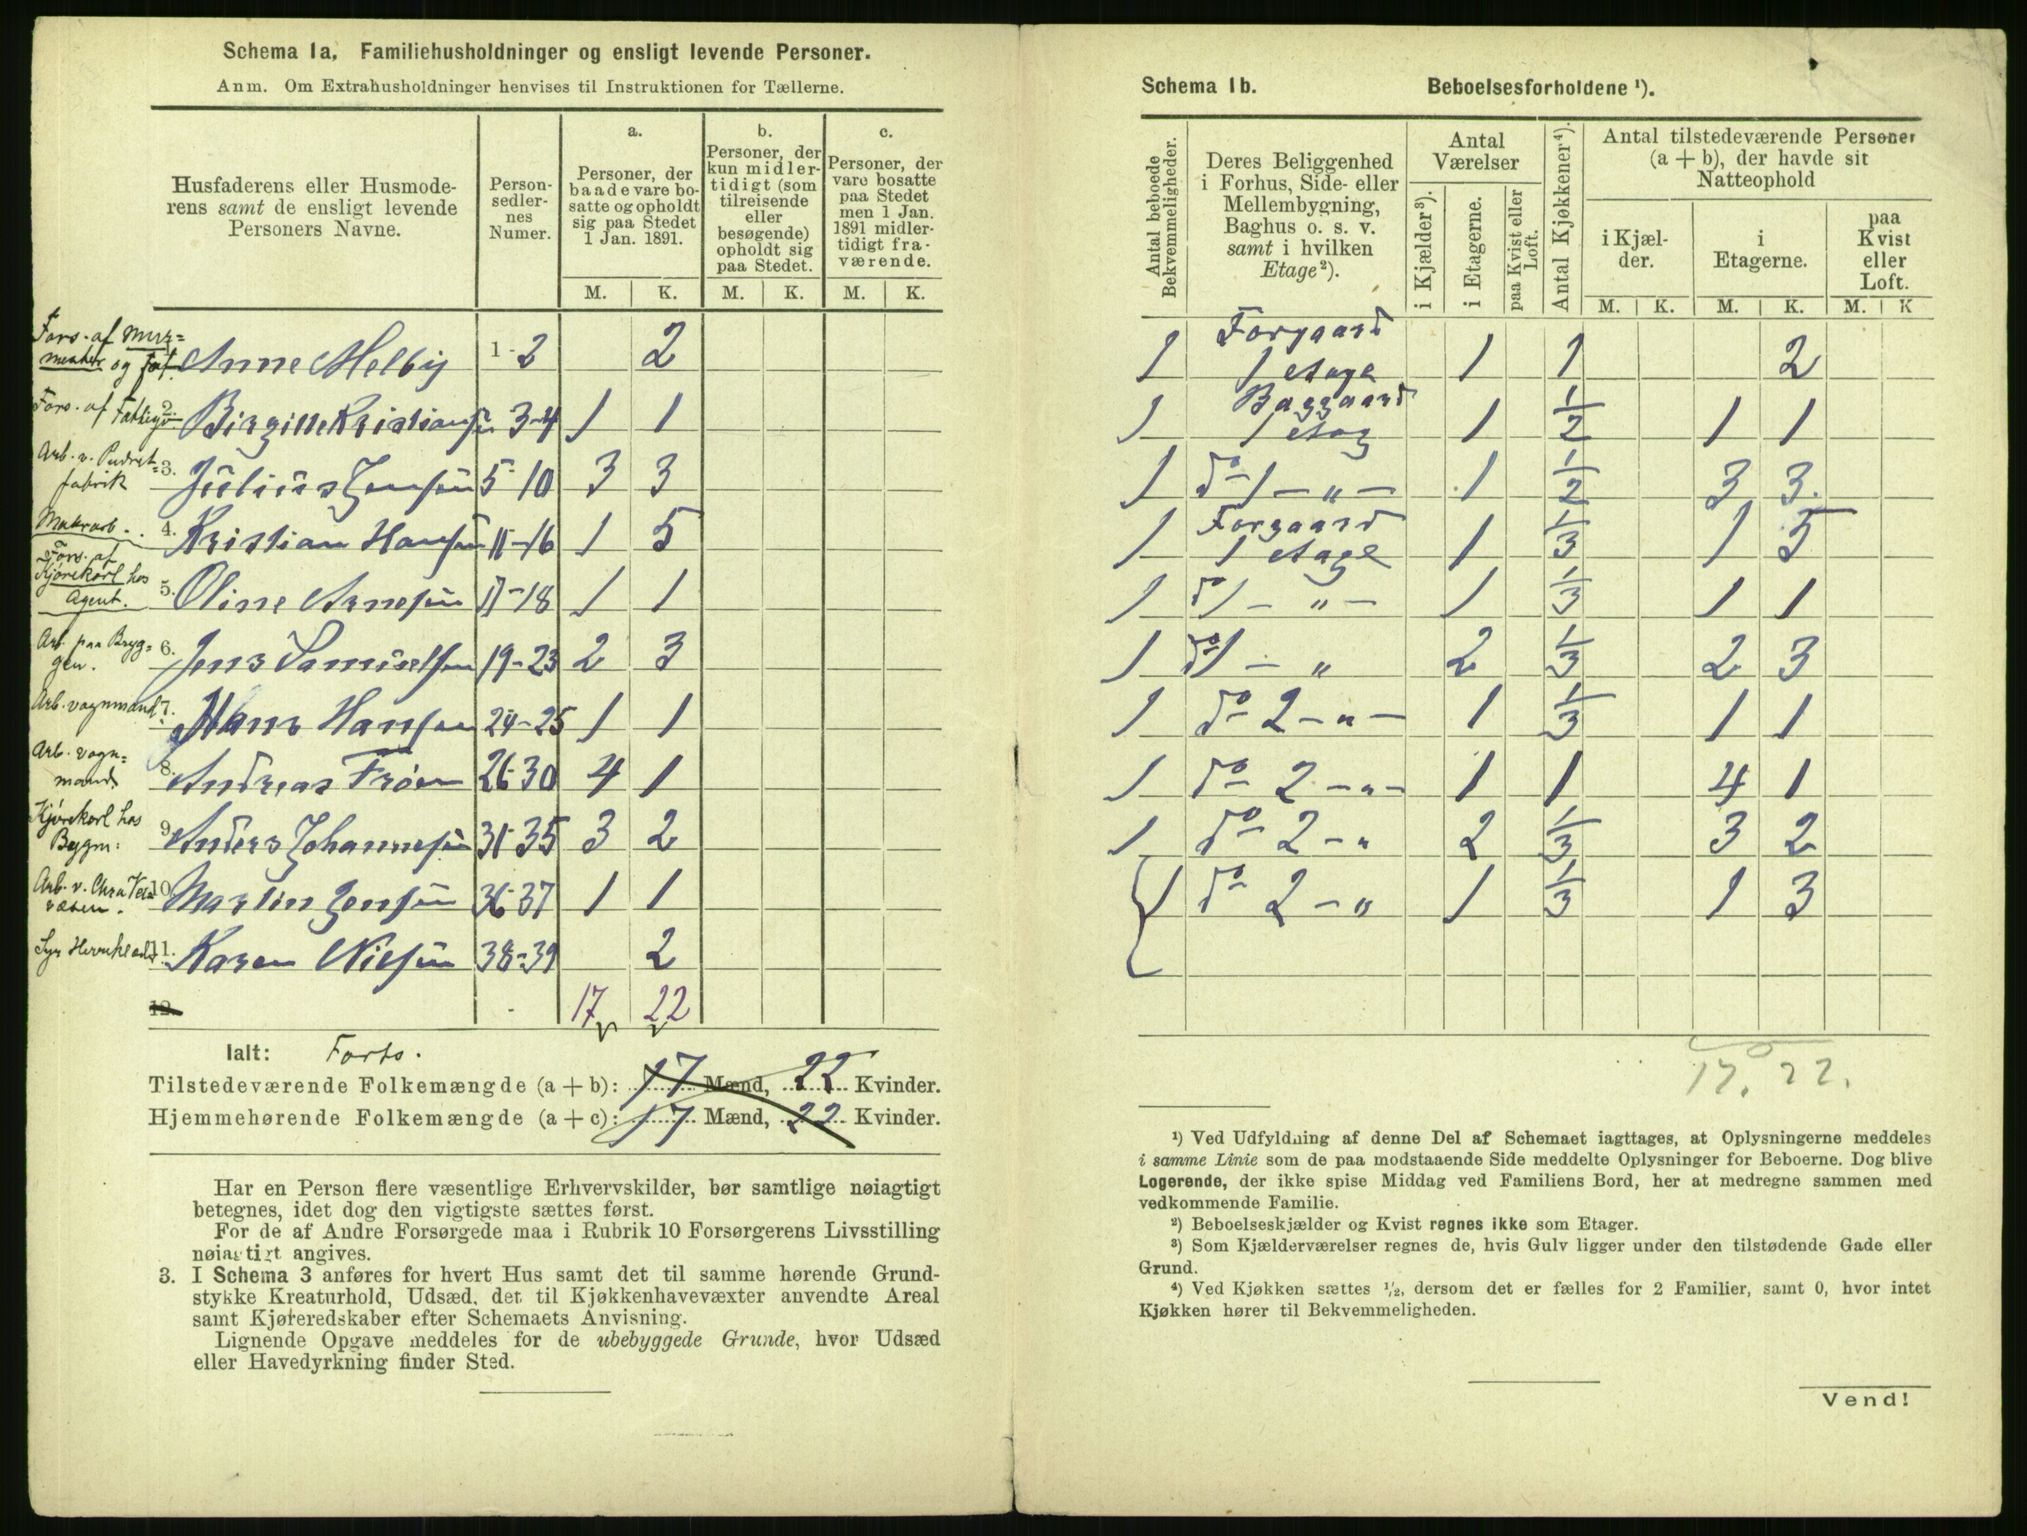 Schema 1a. Familiehusholdninger og ensligt levende Personer.
Anm. Om Extrahusholdninger henvises til Instruktionen for Tællerne.
Husfaderens eller Husmoderens samt de ensligt levende Personers Navne.
Personsedlernes Numer.
a. Personer, der baade vare bosatte og opholdt sig paa Stedet 1 Jan. 1891.
b. Personer, der kun midlertidigt (som tilreisende eller besøgende) opholdt sig paa Stedet.
c. Personer, der vare bosatte paa Stedet men 1 Jan. 1891 midlertidigt fraværende.
M. K. M. K. M. K.
Fors. af Murmester og fat. Anne Melby 1-2 2
Fors. af Fattigv 2. Birgitte Kristiansen 3-4 1 1
Arb. v. Pudretfabrik 3. Julius Jensen 5-10 3 3
Murarb. 4. Kristian Hansen 11-16 1 5
Fors. af Kjørekarl hos Agent. 5. Oline Arnesen 17-18 1 1
Arb. paa Bryggen. 6. Jens Samuelsen 19-23 2 3
Arb. vognmand 7. Hans Hansen 24-25 1 1
Arb. vognmand 8. Andreas Frøen 26-30 4 1
Kjørekarl hos Bygm: 9. Anders Johannesen 31-35 3 2
Arb. v. Chra 10. Martin Jensen 36-37 1 1
Syr 11. Karen Nielsen 38-39 2
12. 17 22
Ialt: Forts.
Tilstedeværende Folkemængde (a + b): 17 Mænd, 22 Kvinder.
Hjemmehørende Folkemængde (a + c): 17 Mænd, 22 Kvinder.
Har en Person flere væsentlige Erhvervskilder, bør samtlige nøiagtigt
betegnes, idet dog den vigtigste sættes først.
For de af Andre Forsørgede maa i Rubrik 10 Forsørgerens Livsstilling
nøiagtigt angives.
3. I Schema 3 anføres for hvert Hus samt det til samme hørende Grund-
stykke Kreaturhold, Udsæd, det til Kjøkkenhavevæxter anvendte Areal
samt Kjøreredskaber efter Schemaets Anvisning.
Lignende Opgave meddeles for de ubebyggede Grunde, hvor Udsæd
eller Havedyrkning finder Sted.
Schema 1b. Beboelsesforholdene ¹).
Antal beboede Bekvemmeligheder.
Deres Beliggenhed i Forhus, Side- eller Mellembygning, Baghus o. s. v. samt i hvilken Etage²).
Antal Værelser
i Kjælder³).
i Etagerne.
paa Kvist eller Loft.
Antal Kjøkkener⁴).
Antal tilstedeværende Personer (a + b), der havde sit Natteophold
i Kjælder.
i Etagerne.
paa Kvist eller Loft.
M. K. M. K. M. K
1 Forgaard 1 etage 1 1 2
1 Baggaard 1 etag 1 1/2 1 1
1 do 1 - " - 1 1/2 3 3
1 Forgaard 1 etage 1 1/3 1 5
1 do 1 - " - 1 1/3 1 1
1 do 1 - " 2 1/3 2 3
1 do 2 - " - 1 1/3 1 1
1 do 2 - " - 1 1 4 1
1 do 2 - " 2 1/3 3 2
1 do 2 - " 1 1/3 1 3
17. 22.
¹) Ved Udfyldning af denne Del af Schemaet iagttages, at Oplysningerne meddeles
i samme Linie som de paa modstaaende Side meddelte Oplysninger for Beboerne. Dog blive
Logerende, der ikke spise Middag ved Familiens Bord, her at medregne sammen med
vedkommende Familie.
²) Beboelseskjælder og Kvist regnes ikke som Etager.
³) Som Kjælderværelser regnes de, hvis Gulv ligger under den tilstødende Gade eller
Grund.
⁴) Ved Kjøkken sættes 1/2, dersom det er fælles for 2 Familier, samt 0, hvor intet
Kjøkken hører til Bekvemmeligheden.
Vend!